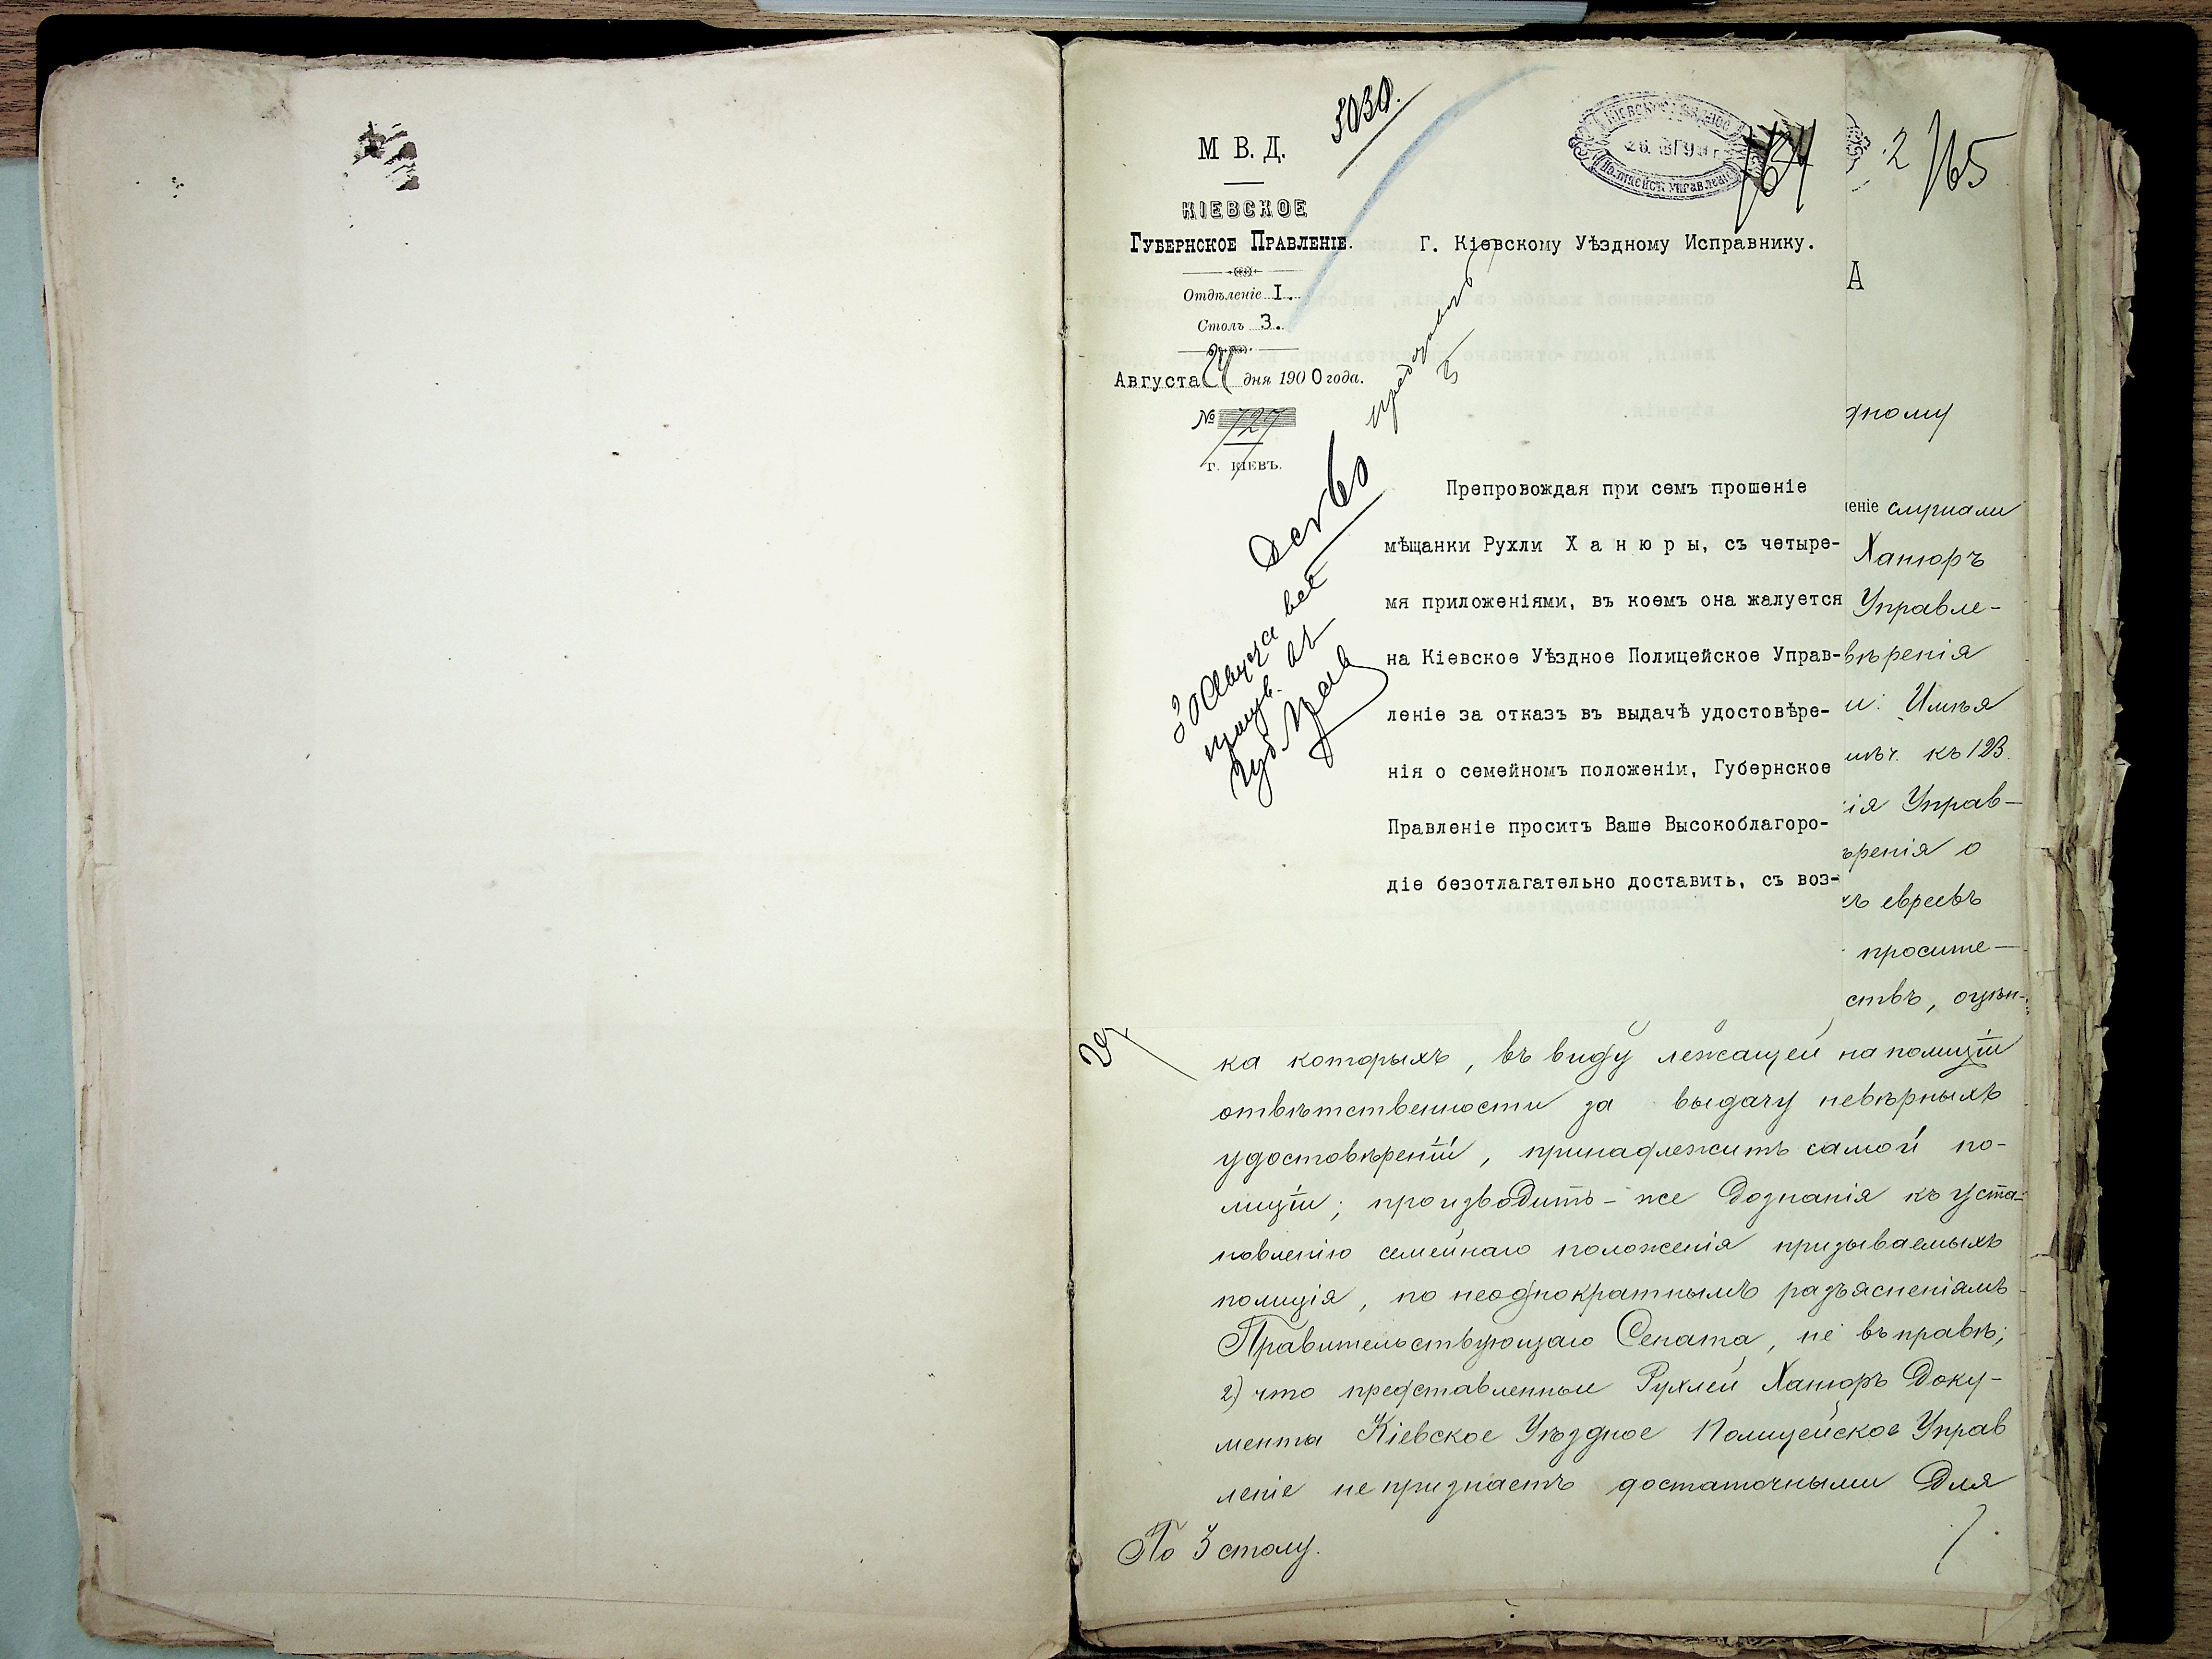 5030.
М В. Д.
КІЕВСКОЕ
ГУБЕРНСКОЕ ПРАВЛЕНІЕ.
Отдѣленіе I.
Столъ 3.
Августа 24 дня 1900 года.
№ 727
Г. КІЕВЪ.
КІЕВСКОЕ УѢЗДНОЕ
ПОЛИЦЕЙСК. УПРАВЛЕНІЕ
764
Г. Кіевскому Уѣздному Исправнику.
Препровождая при семъ прошеніе
мѣщанки Рухли Х а н ю р ы, съ четыре-
мя приложеніями, въ коемъ она жалуется
на Кіевское Уѣздное Полицейское Управ-
леніе за отказъ въ выдачѣ удостовѣре-
нія о семейномъ положеніи, Губернское
Правленіе проситъ Ваше Высокоблагоро-
діе безотлагательно доставить, съ воз-
30 Августа
2 765
А
дному
леніе слушали
Ханюръ
Управле-
вѣренія
и: Имѣя
къ 123.
ія Управ-
ѣренія о
хъ евреевъ
просите-
ствъ, оцѣн-
ка которыхъ, въ виду лежащей на полиціи
отвѣтственности за выдачу невѣрныхъ
удостовѣреній, принадлежитъ самой по-
лиціи; производить-же дознанія къ уста-
новленію семейнаго положенія призываемыхъ
полиція, по неоднократнымъ разъясненіямъ
Правительствующаго Сената, не въ правѣ;
2) что представленные Рухлей Ханюръ доку-
менты Кіевское Уѣздное Полицейское Управ
леніе не признаетъ достаточными для
По 3 столу.